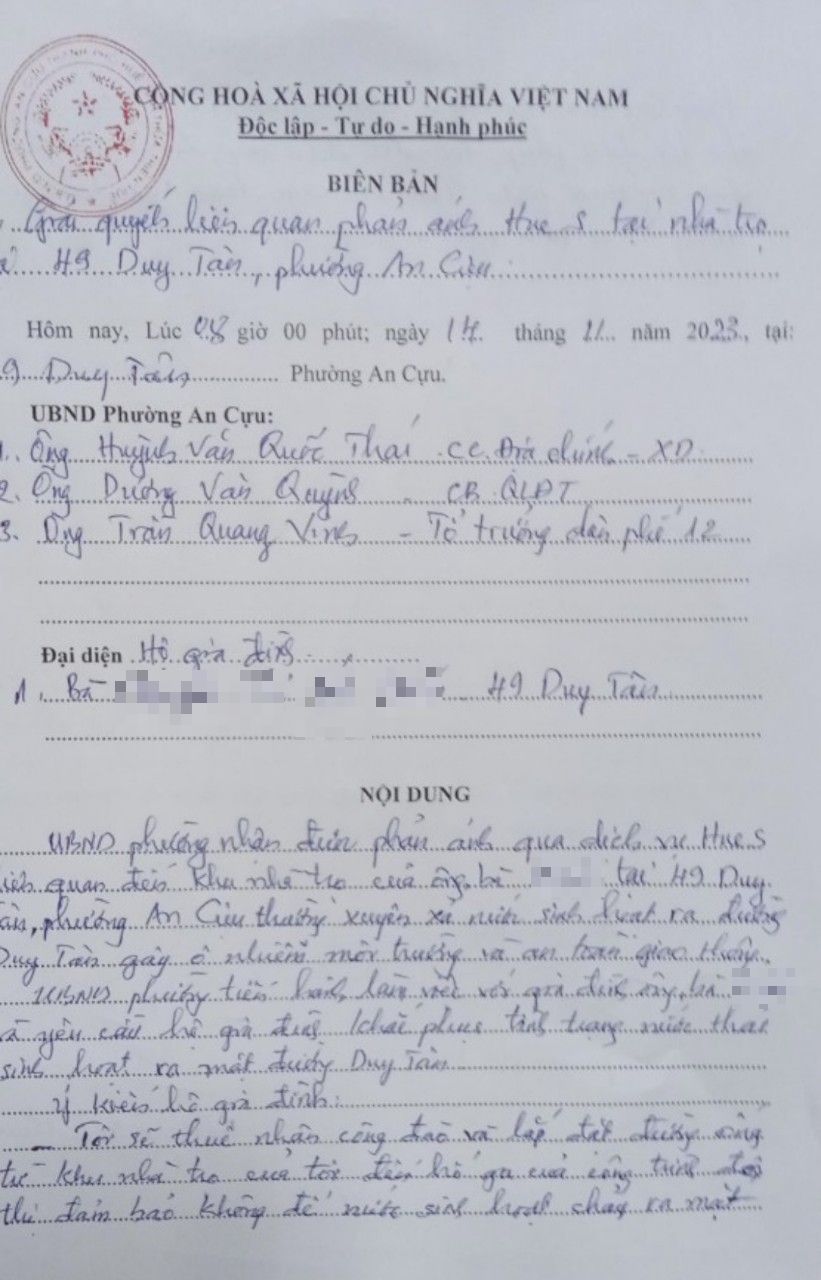 CỘNG HOÀ XÃ HỘI CHỦ NGHĨA VIỆT NAM
Độc lập - Tự do - Hạnh phúc
BIÊN BẢN
Giải quyết liên quan phản ánh Hue S tại nhà trọ
49 Duy Tân, phường An Cựu
Hôm nay, Lúc 08 giờ 00 phút; ngày 14 tháng 11 năm 2023, tại:
9 Duy Tân Phường An Cựu.
UBND Phường An Cựu:
1. Ông Huỳnh Văn Quốc Thái CC. Địa chính - XD
2. Ông Dương Văn Quỳnh - CB QLĐT
3. Ông Trần Quang Vinh - Tổ trưởng dân phố 12
Đại diện Hộ gia đình
1. Bà 49 Duy Tân
NỘI DUNG
UBND phường nhận được phản ánh qua dịch vụ Hue S
liên quan đến khu nhà trọ của ông, bà tại 49 Duy
Tân, phường An Cựu thường xuyên xả nước sinh hoạt ra đường
Duy Tân gây ô nhiễm môi trường và an toàn giao thông.
UBND phường tiến hành làm việc với gia đình ông, bà
và yêu cầu hộ gia đình khắc phục tình trạng nước thải
sinh hoạt ra mặt đường Duy Tân
Ý kiến hộ gia đình:
- Tôi sẽ thuê nhân công đào và lắp đặt đường ống
từ khu nhà trọ của tôi đến hố ga của công trình đô
thị đảm bảo không để nước sinh hoạt chảy ra mặt